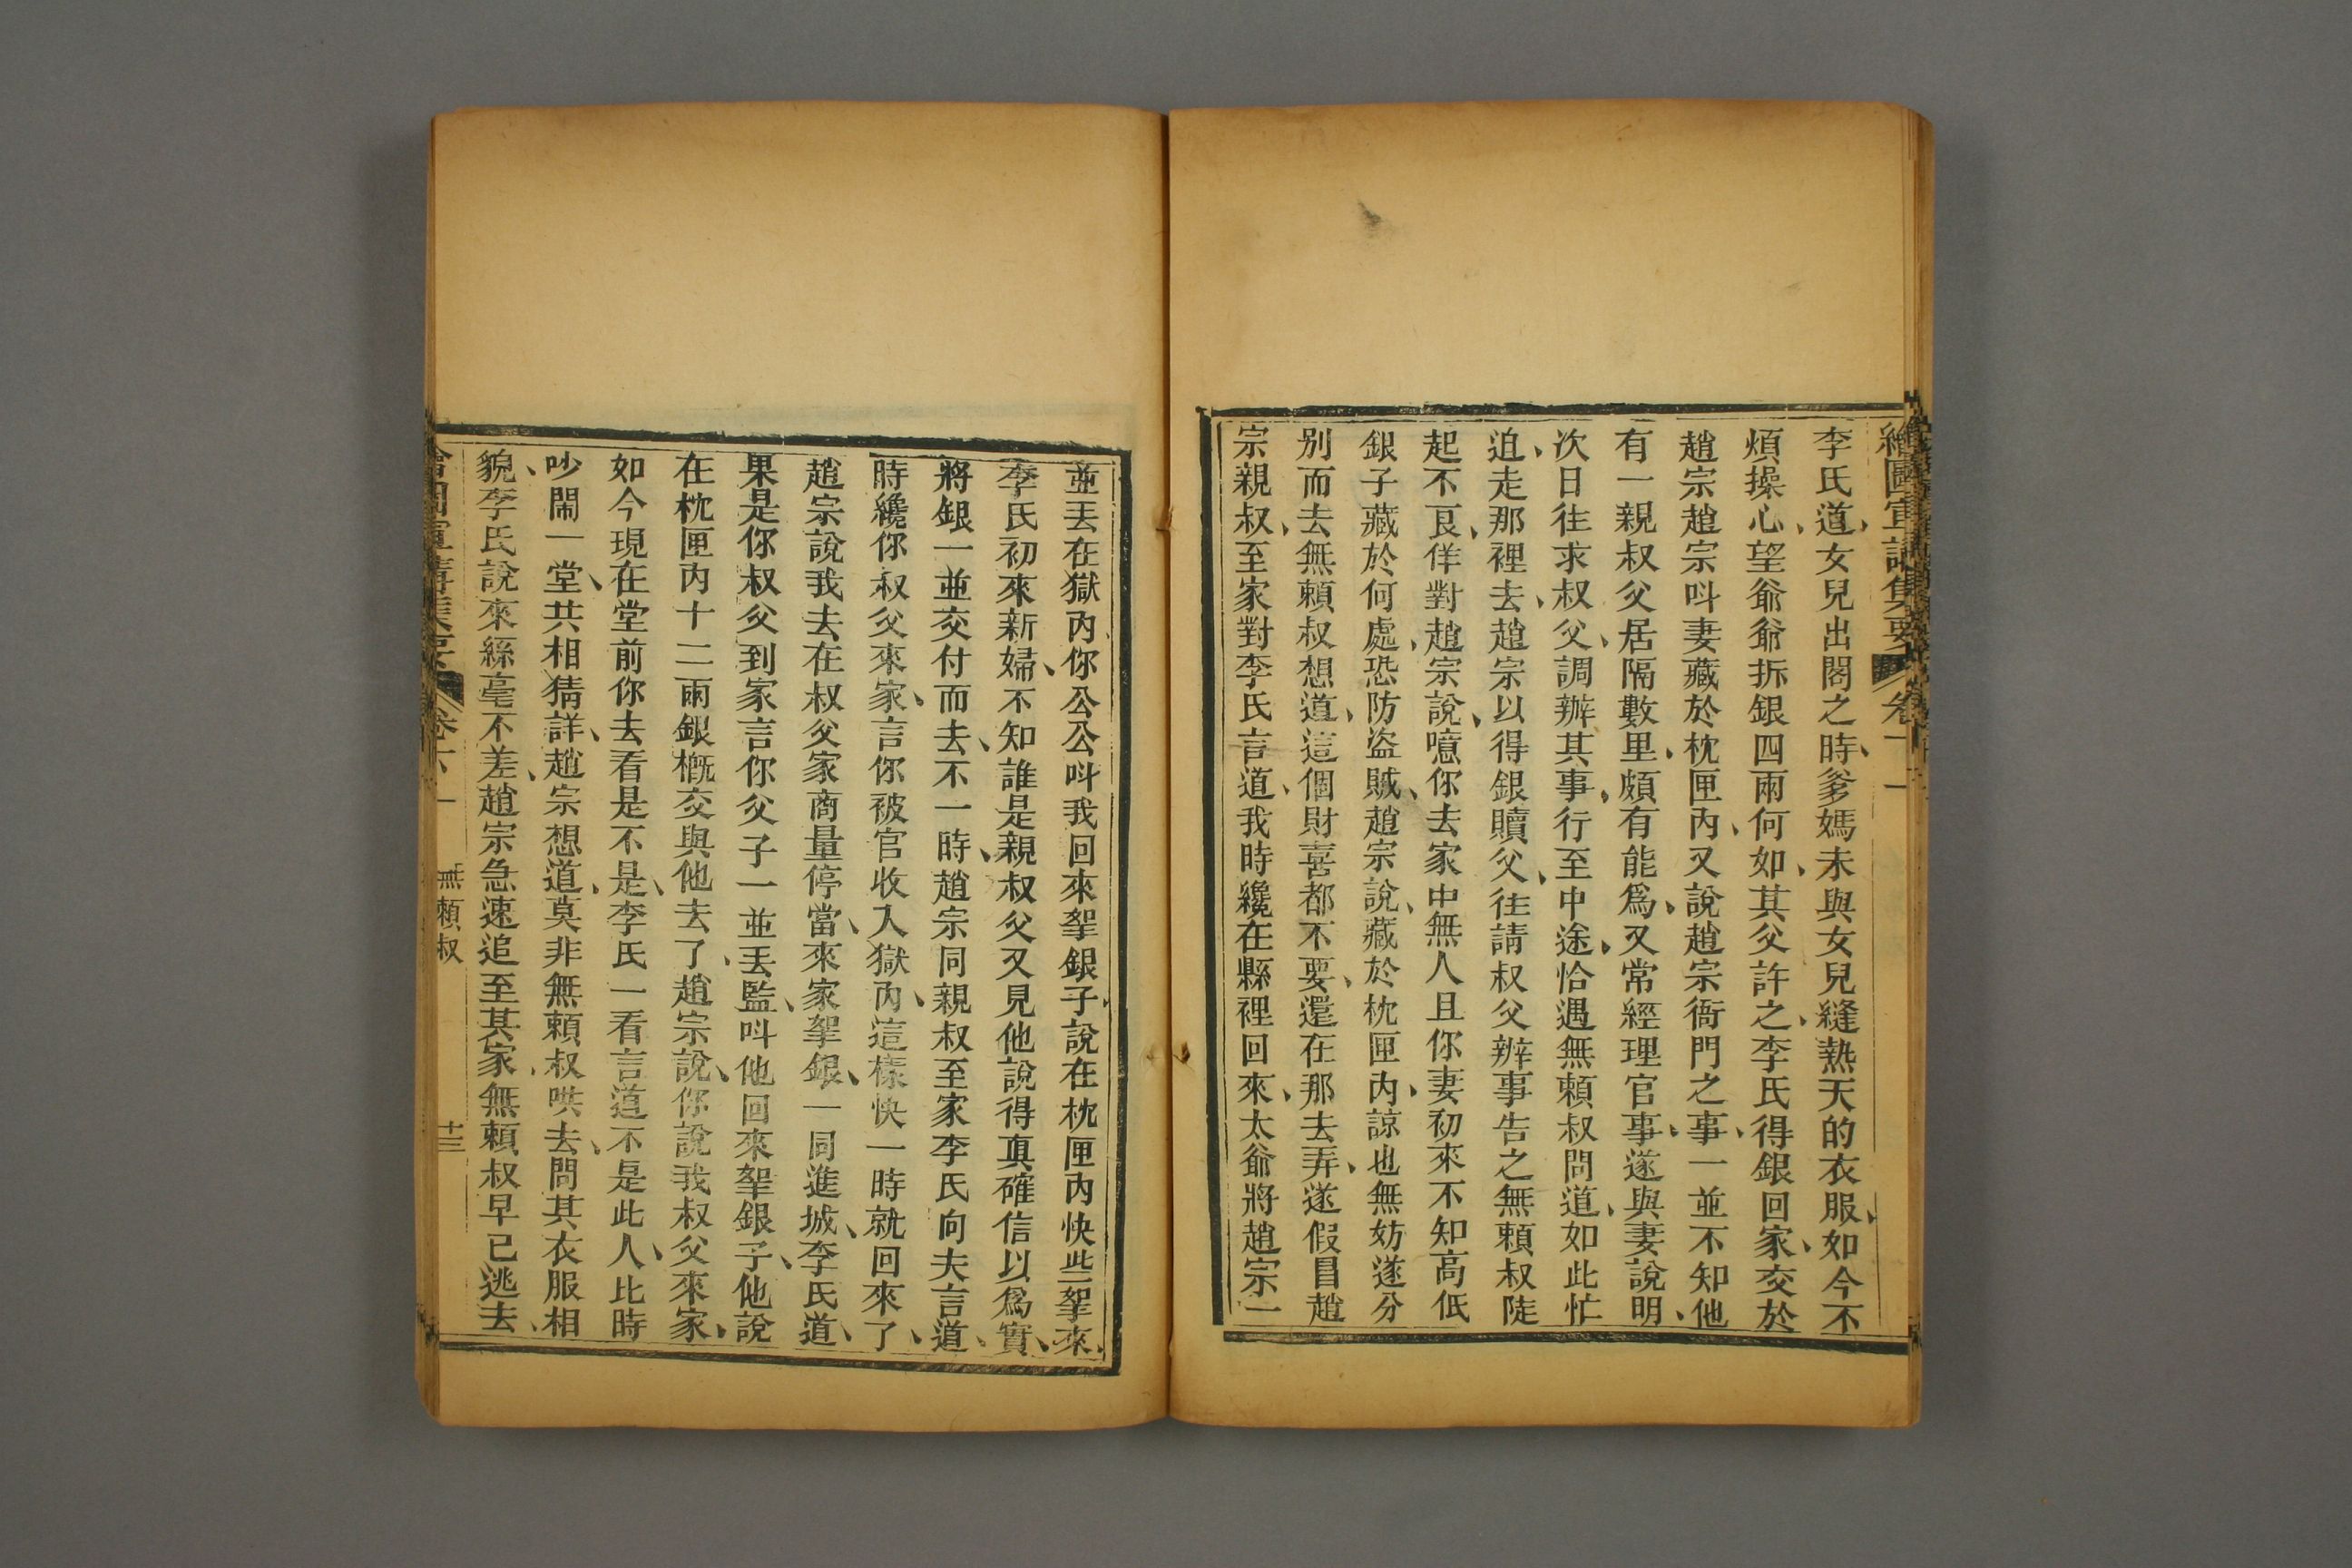 繪圖宣講集要 卷十一
李氏道、女兒出閣之時、爹媽未與女兒縫熱天的衣服、如今不
煩操心、望爺爺拆銀四兩何如、其父許之、李氏得銀回家、交於
趙宗趙宗呌妻藏於枕匣內、又說趙宗衙門之事、一並不知他
有一親叔父居隔數里、頗有能爲、又常經理官事、遂與妻說明、
次日往求叔父、調辦其事、行至中途、恰遇無賴叔問道、如此忙
迫、走那裡去、趙宗以得銀贖父、往請叔父辦事告之無賴叔陡
起不良、佯對趙宗說、噫你去家中無人且你妻初來不知高低
銀子藏於何處、恐防盜賊、趙宗說、藏於枕匣內、諒也無妨遂分
別而去、無賴叔想道、這個財喜都不要、還在那去弄、遂假冒趙
宗親叔、至家對李氏言道、我時纔在縣裡回來、太爺將趙宗一
並丟在獄內、你公公呌我回來拏銀子、說在枕匣內快些拏來、
李氏初來新婦、不知誰是親叔父又見他說得真確信以爲實、
將銀一並交付而去、不一時、趙宗同親叔至家李氏向夫言道、
時纔你叔父來家、言你被官收入獄內、這樣快一時就回來了、
趙宗說我去在叔父家商量停當、來家拏銀、一同進城、李氏道、
果是你叔父到家言你父子一並丟監、呌他回來拏銀子、他說
在枕匣內十二兩銀槪交與他去了、趙宗說、你說我叔父來家、
如今現在堂前你去看是不是、李氏一看言道不是此人、比時
吵鬧一堂、共相猜詳、趙宗想道、莫非無賴叔哄去、問其衣服相
貌、李氏說來絲毫不差、趙宗急速追至其家、無賴叔早已逃去、
無賴叔 十三